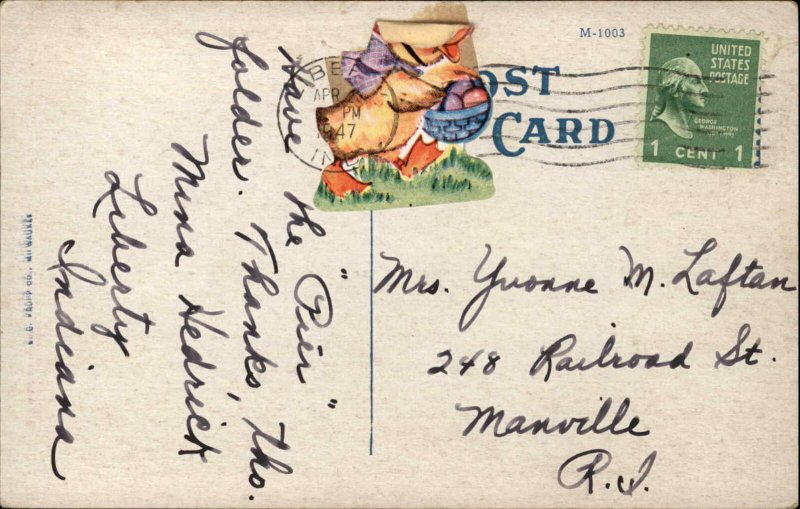 M-1003
POST
CARD
UNITED
STATES
POSTAGE
GEORGE
WASHINGTON
1 CENT 1
APR
PM
1947
IND
Have the "Pier"
folder. Thanks, tho.
Mina Hedrick
Liberty
Indiana
Mrs. Yvonne M. Laftan
248 Railroad St.
Manville
R.I.
CO., MILWAUKEE